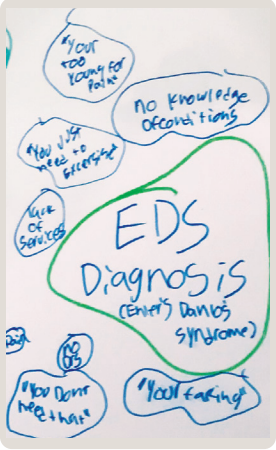 "Your
too
young for
pain"
no knowledge
of conditions
"You just
need to
excersise"
lack
of
services
EDS
Diagnosis
(Ehler's Danlos
syndrome)
no
"You Dont
need that"
"Your faking"